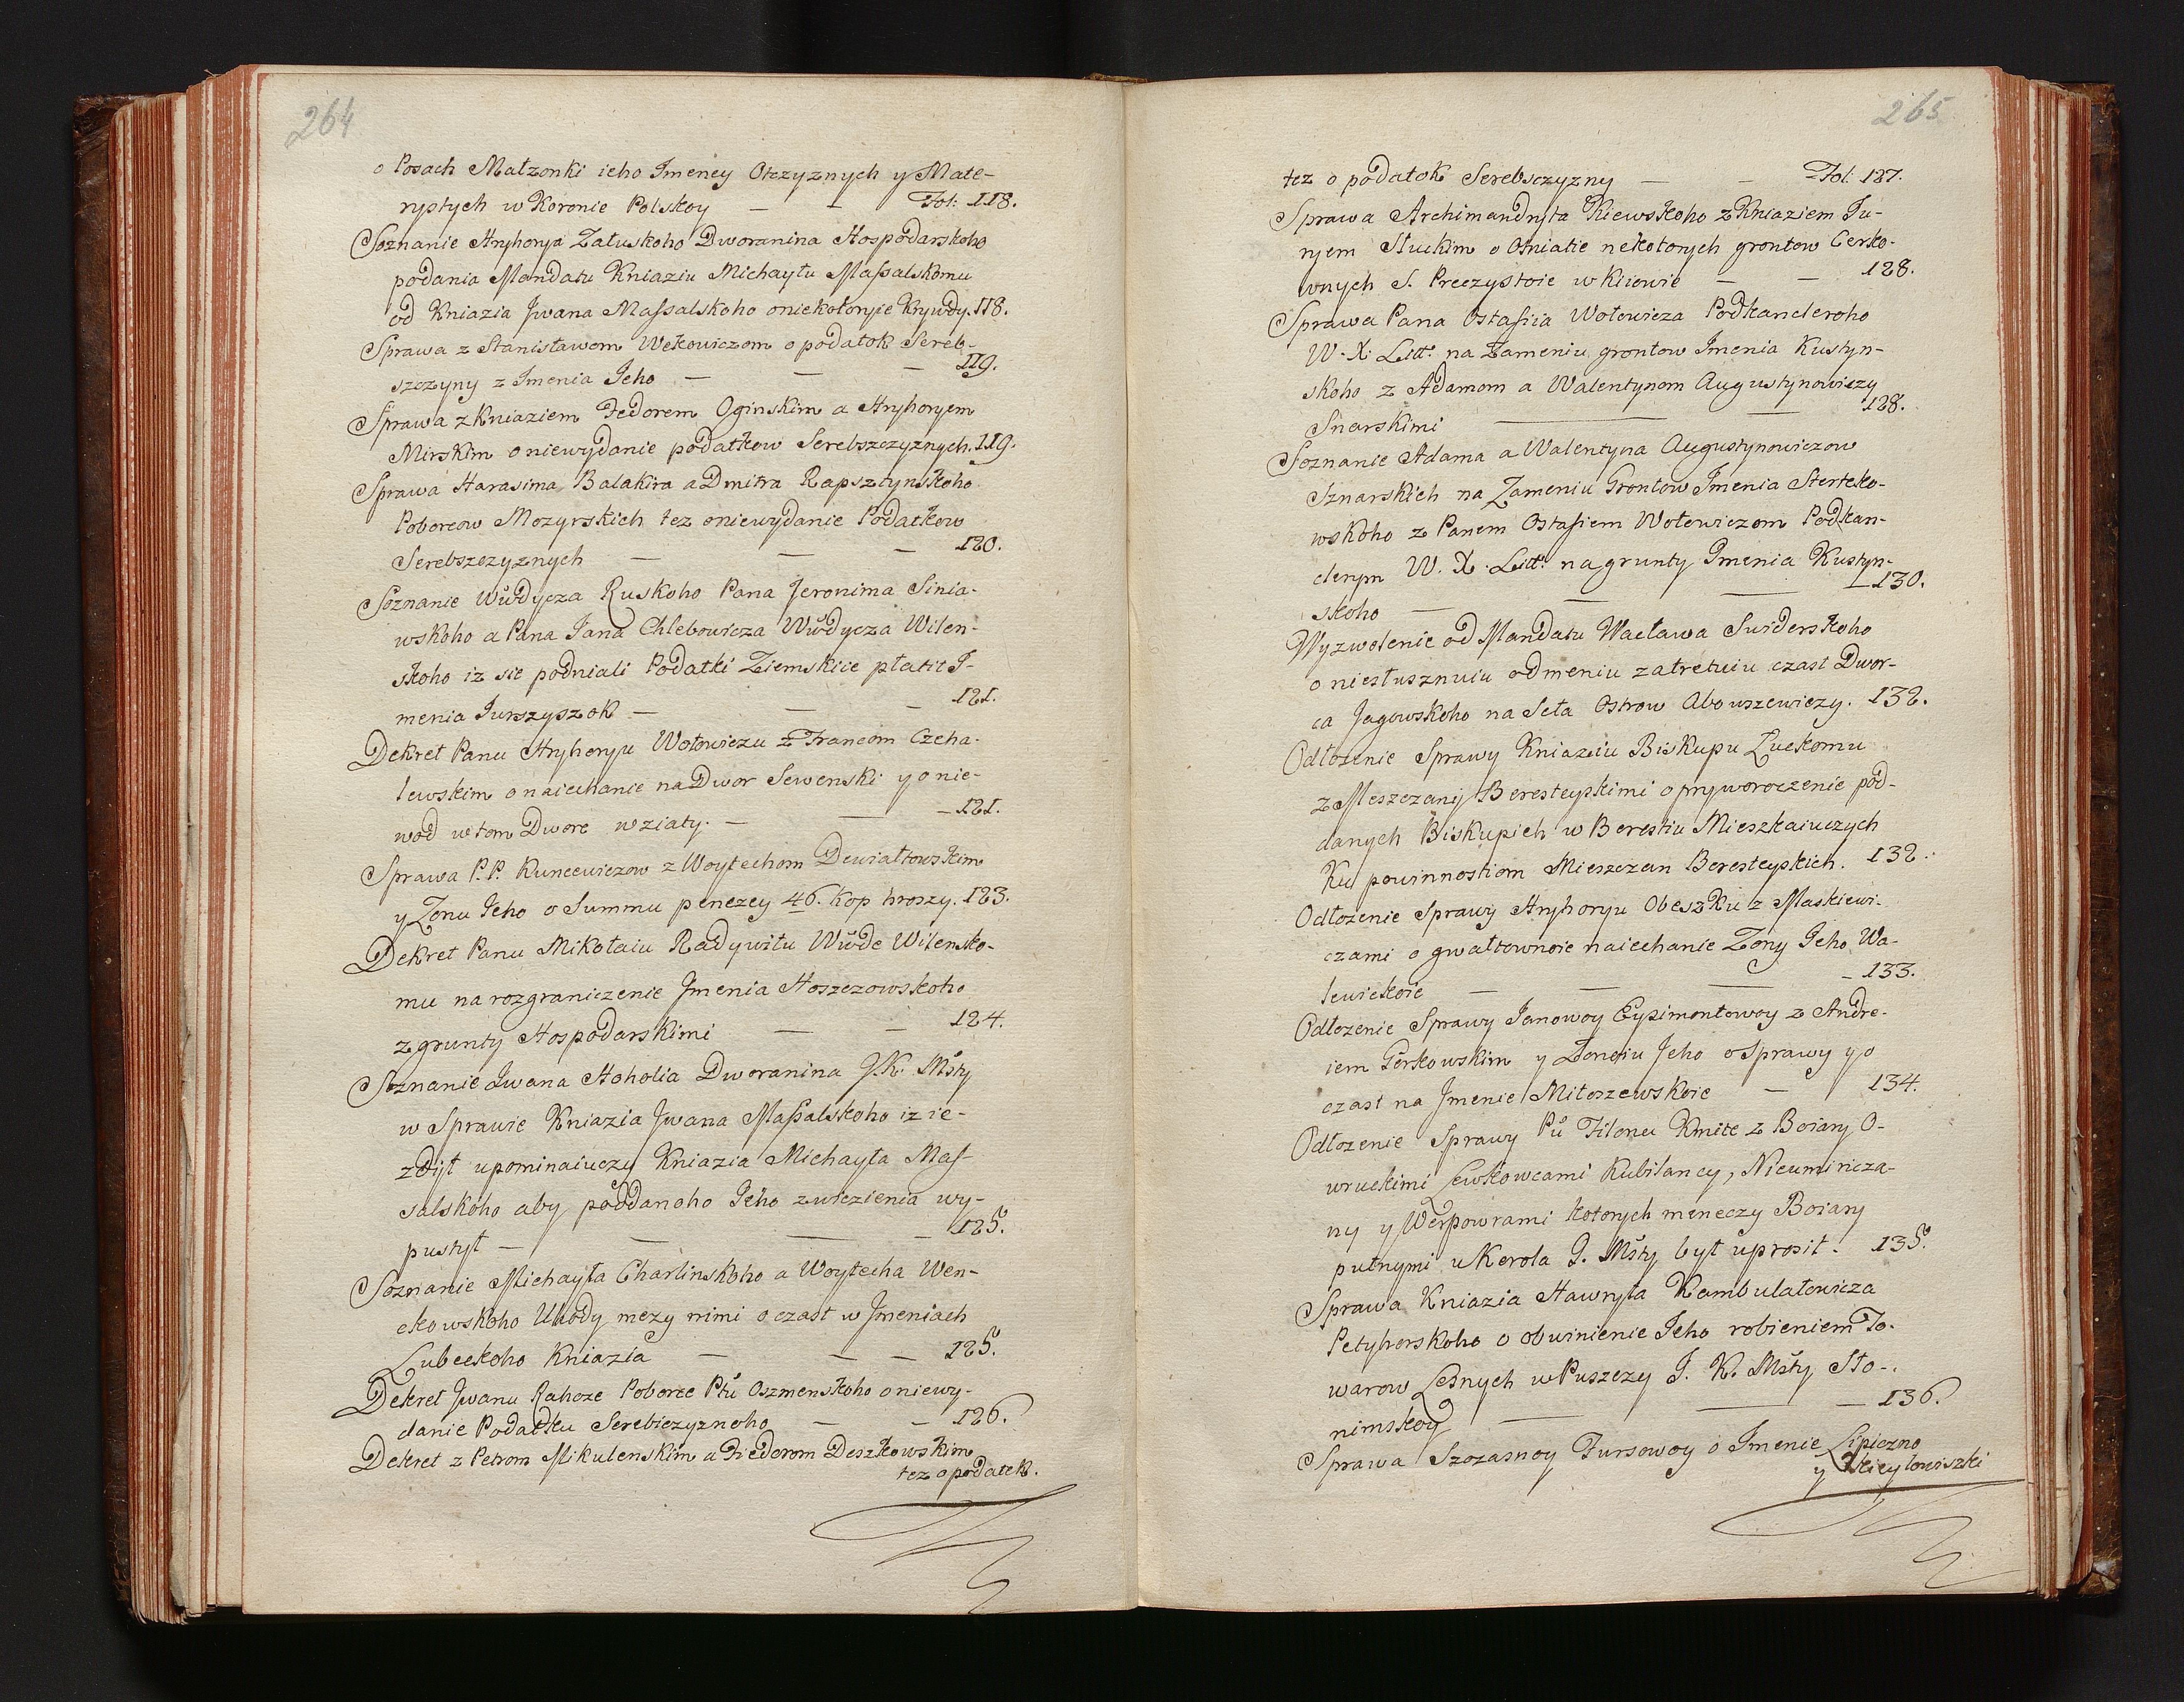 264
o Posach Małzonki ieho Imeney Otczyznych y Mate-
rystych w Koronie Polskoy — — Fol: 118.
Soznanie Hryhorya Załuskoho Dworanina Hospodarskoho
podania Mandatu Kniaziu Michayłu Massalskomu
od Kniazia Jwana Massalskoho oniekotoryie Krywdy. 118.
Sprawa z Stanisławom Wekowiczom o podatok Sereb-
szczyny z Imenia Jeho — — — 119.
Sprawa z Kniaziem Fedorem Oginskim a Hryhoryem
Mirskim o niewydanie podatkow Serebszczyznych. 119.
Sprawa Harasima Balakira a Dmitra Rapsztynskoho
Poborcow Mozyrskich tez oniewydanie Podatkow
Serebszczyznych — — — 120.
Soznanie Wwdycza Ruskoho Pana Jeronima Sinia-
wskoho a Pana Jana Chlebowicza Wwdycza Wilen-
skoho iz sie podniali Podatki Ziemskiie płatit I-
menia Iurszyszok — — — 121.
Dekret Panu Hryhoryu Wołowiczu z Francom Czeha-
lewskim o naiechanie na Dwor Sewenski y o nie-
wod w tom Dwore wziaty. — — — 121.
Sprawa P.P. Kuncewiczow z Woytechom Dewiałtowskim
y Zonu Jeho o Summu penezey 46. kop hroszy. 123.
Dekret Panu Mikołaiu Radywiłu Wwde Wilensko-
mu na rozgraniczenie Jmenia Hoszczowskoho
z grunty Hospodarskimi — — 124.
Soznanie Jwana Hoholia Dworanina J.K. Msty
w Sprawie Kniazia Jwana Massalskoho iz ie-
zdył upominaiuczy Kniazia Michayła Mas-
salskoho aby poddanoho Jeho zwiezienia wy-
pustył — — — — 125.
Soznanie Michayła Charlinskoho a Woytecha Wen-
ckowskoho Uhody mezy nimi o czast w Jmeniach
Lubeckoho Kniazia — — — 125.
Dekret Jwanu Rahoze Poborce Ptu Oszmenskoho o niewy-
danie Podatku Serebiczyznoho — — 126.
Dekret z Petrom Mikulenskim a Fiederom Deszkowskim
tez o podatek.
265
tez o podatok Serebsczyzny — — Fol. 127.
Sprawa Archimandryta Kiewskoho z Kniaziem Iu-
ryem Słuckim o Otniatie nekotorych grontow Cerko-
wnych S. Preczystoie w Kiiowie — — 128.
Sprawa Pana Ostafiia Wołowicza Podkancleroho
W. X. Litt: na Zameniu grontow Imenia Kustyn-
skoho z Adamom a Walentynom Augustynowiczy
Snarskimi — — 128.
Soznanie Adama a Walentyna Augustynowiczow
Sznarskich na Zameniu Grontow Imenia Sterteko-
wskoho z Panem Ostafiem Wołowiczom Podkan-
clerym W. X. Litt: na grunty Imenia Kustyn-
skoho — — — — 130.
Wyzwolenie od Mandatu Wacława Swiderskoho
o niesłusznuiu odmeniu zatretuiu czast Dwor-
ca Jagowskoho na Seła Ostrow Abowszewiczy. 132.
Odłozenie Sprawy Kniaziu Biskupu Łuckomu
z Meszczany Beresteyskimi o pryworoczenie pod-
danych Biskupich w Berestiu Mieszkaiuczych
Ku powinnostiom Mieszczan Beresteyskich. 132.
Odłozenie Sprawy Hryhoryu Obeszku z Maskiewi-
czami o gwałtownoie naiechanie Zony Jeho Wa-
lewickoie — — — — 133.
Odłozenie Sprawy Janowoy Eysimontowoy z Andre-
iem Gorkowskim y Zonoiu Jeho o Sprawy y o
czast na Jmenie Miłoszewskoie — 134.
Odłozenie Sprawy Pu Filonu Kmite z Boiary O-
wruckimi Lewkowcami Kubilancy, Nieumiricza-
ny y Werpowrami kotorych meneczy Boiary
putnymi u Korola J. Msty był uprosił. 135.
Sprawa Kniazia Hawryła Kambulatowicza
Petyhorskoho o obwinienie Jeho robieniem To-
warow Lesnych w Puszczy J. K. Msty Sło-
nimskoy — — — 136.
Sprawa Szczasnoy Fursowoy o Imenie Lipiczno
y